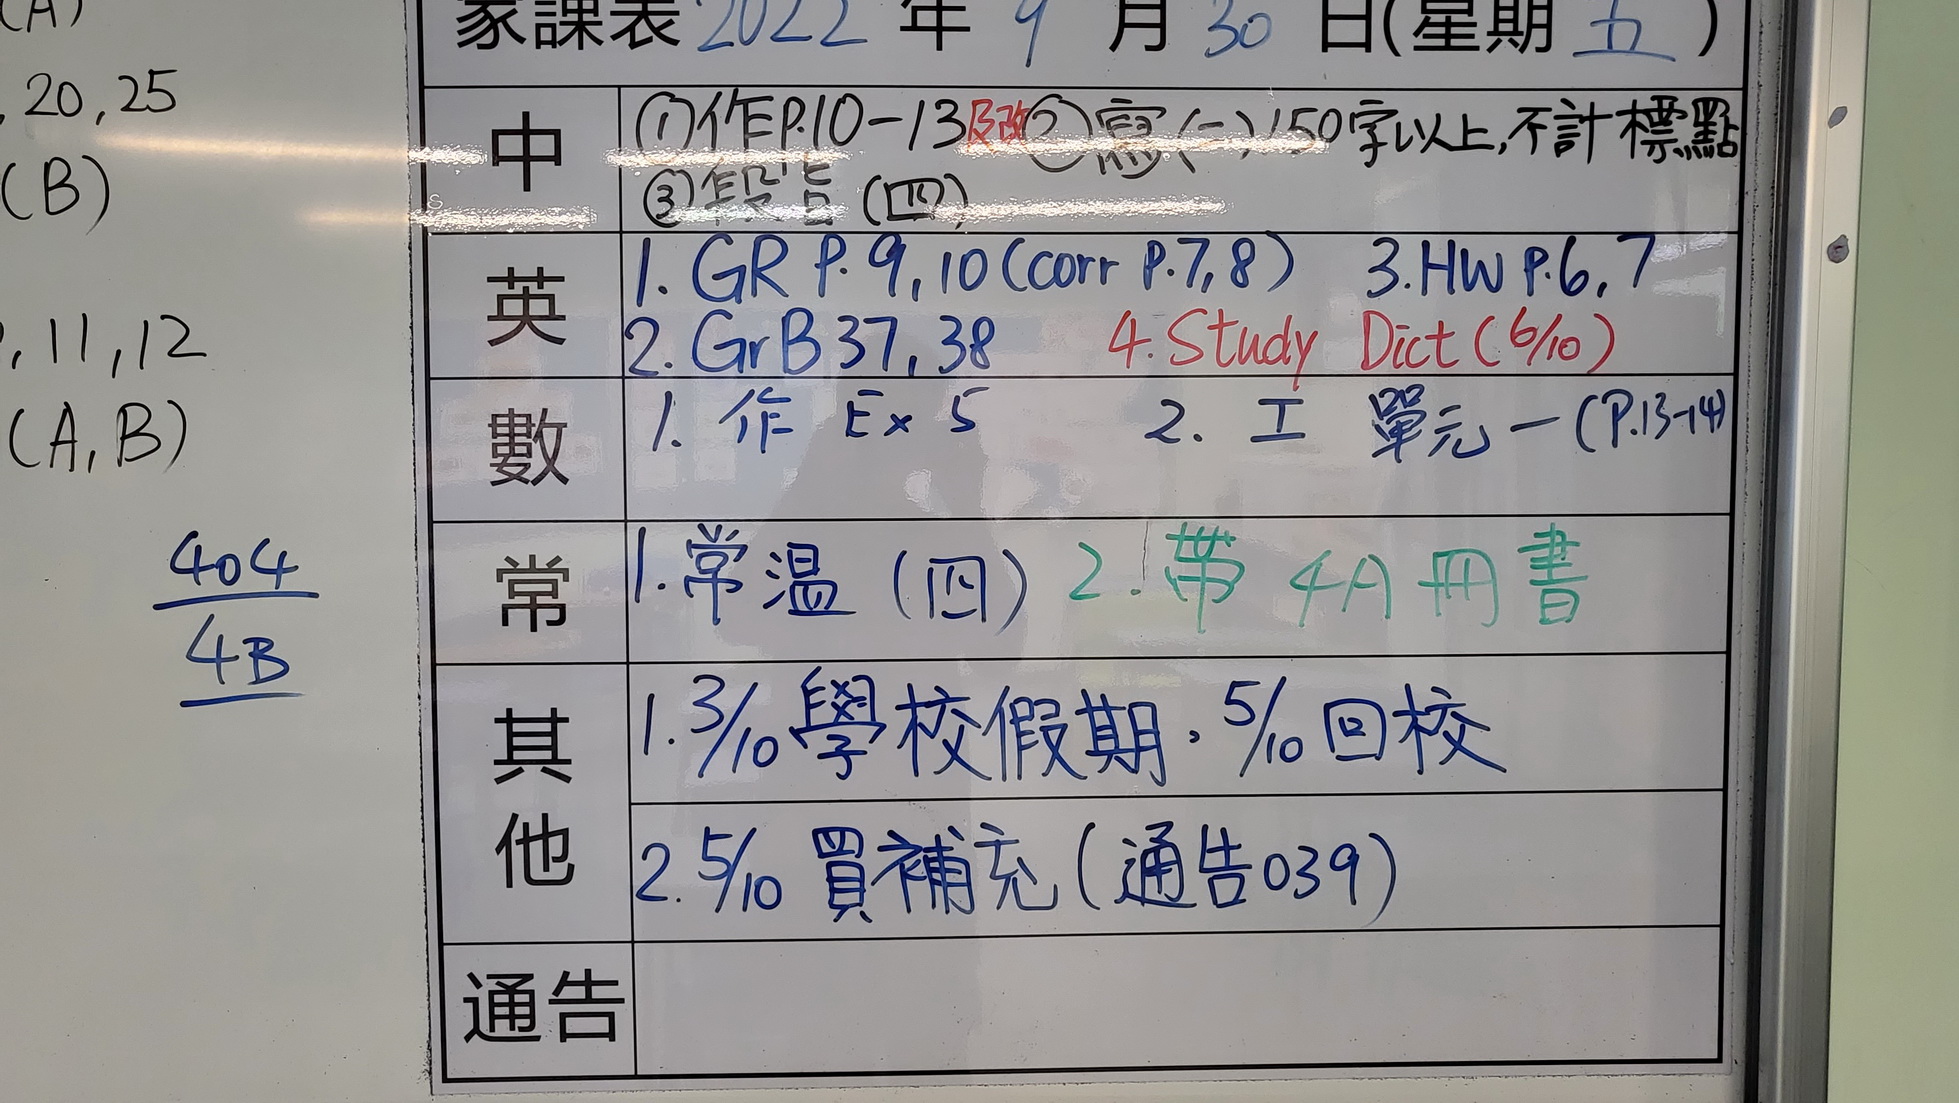 (A)
, 20, 25
(B)
, 11, 12
(A, B)
404
4B
家課表 2022 年 9 月 30 日(星期 五 )
中
①作P.10-13及改②寫(一)150字以上,不計標點
③段旨(四)
英
1. GR P. 9, 10 (corr P.7, 8) 3. HW P.6, 7
2. GrB 37, 38 4. Study Dict (6/10)
數
1. 作 Ex 5 2. 工 單元一(P.13-14)
常
1. 常溫 (四) 2. 帶 4A 冊書
其他
1. 3/10 學校假期, 5/10 回校
2. 5/10 買補充 (通告039)
通告